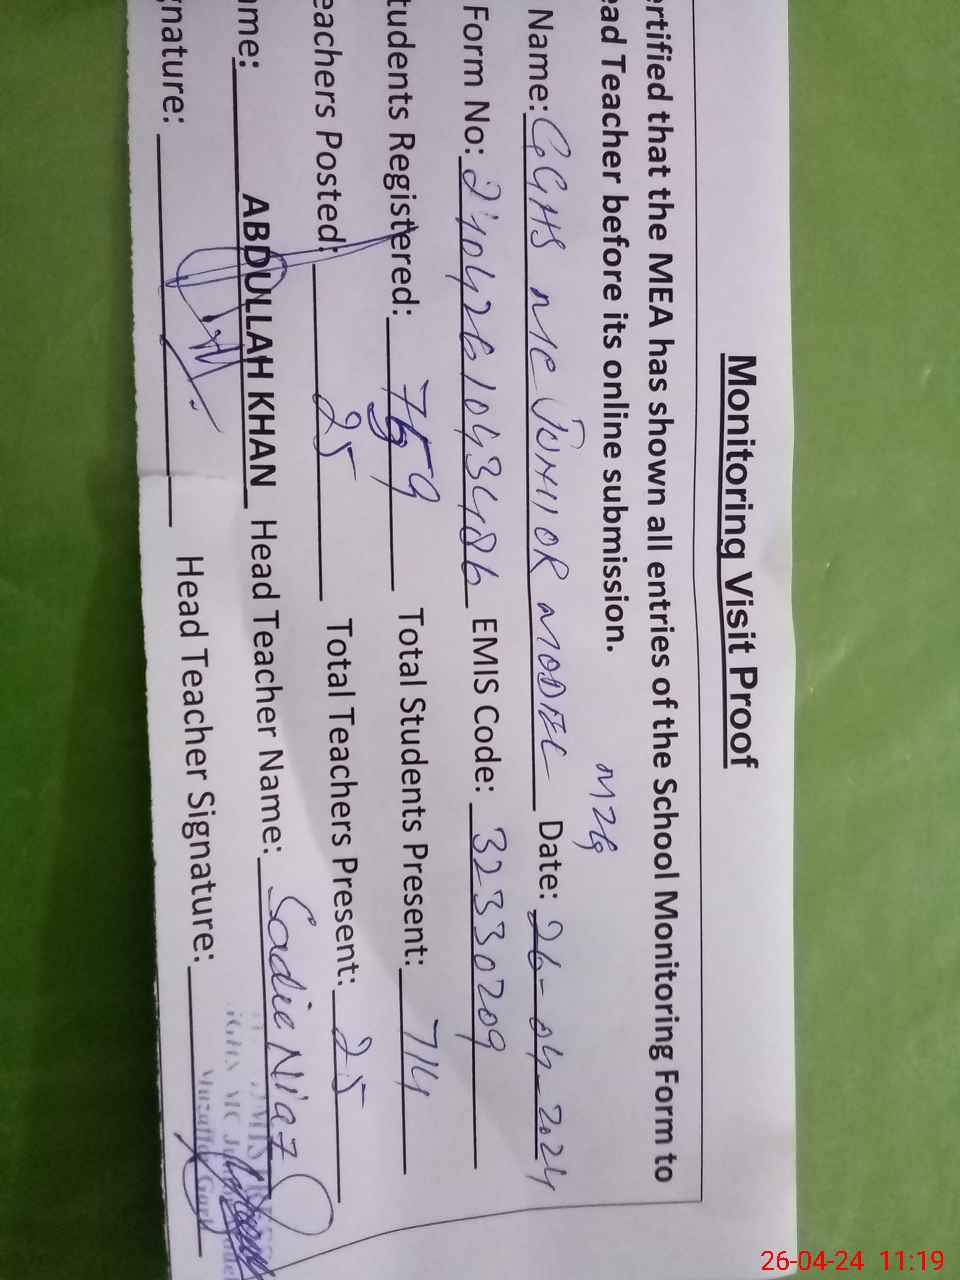 Monitoring Visit Proof
ertified that the MEA has shown all entries of the School Monitoring Form to
ead Teacher before its online submission.
MZG
Name: GGHS MC JUNIOR MODEL Date: 26-04-2024
Form No: 24042610493486 EMIS Code: 32330209
tudents Registered: 759 Total Students Present: 714
eachers Posted: 25 Total Teachers Present: 25
ame: ABDULLAH KHAN Head Teacher Name: Sadie Niaz
gnature: Head Teacher Signature:
26-04-24 11:19